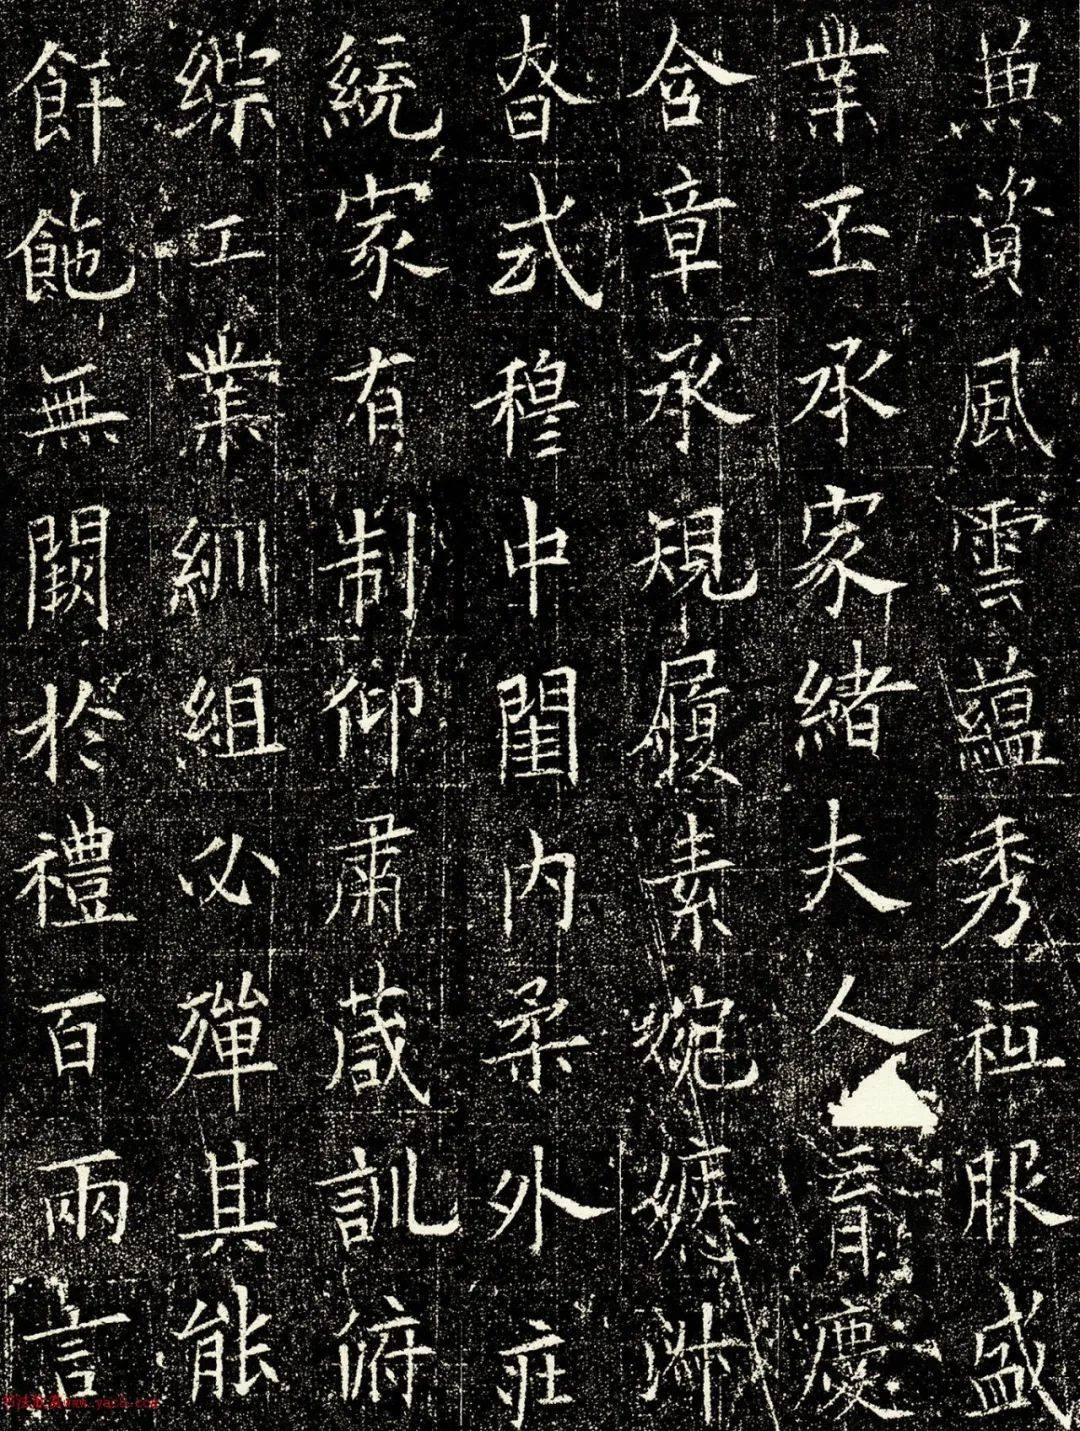 兼資風雲蘊秀袛服盛
業丕承家緒夫人育慶
含章承規履素婉嫕淋
昚式穆中閨内柔外莊
統家有制仰肅蒇訓俯
綜工業紃組必殫其能
餅飽無闕於禮百兩言